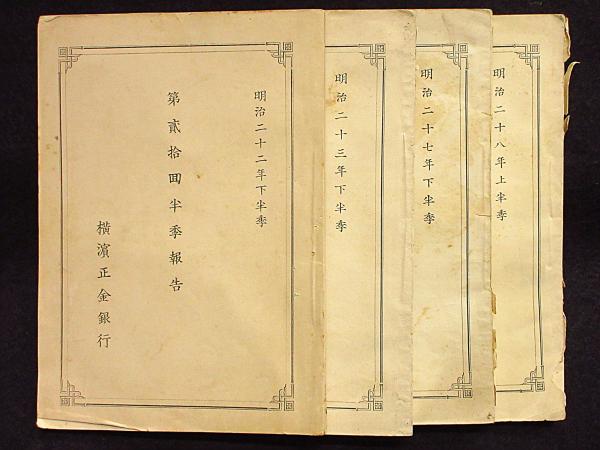 明治二十八年上半季
明治二十七年下半季
明治二十三年下半季
明治二十二年下半季
第貳拾回半季報告
橫濱正金銀行